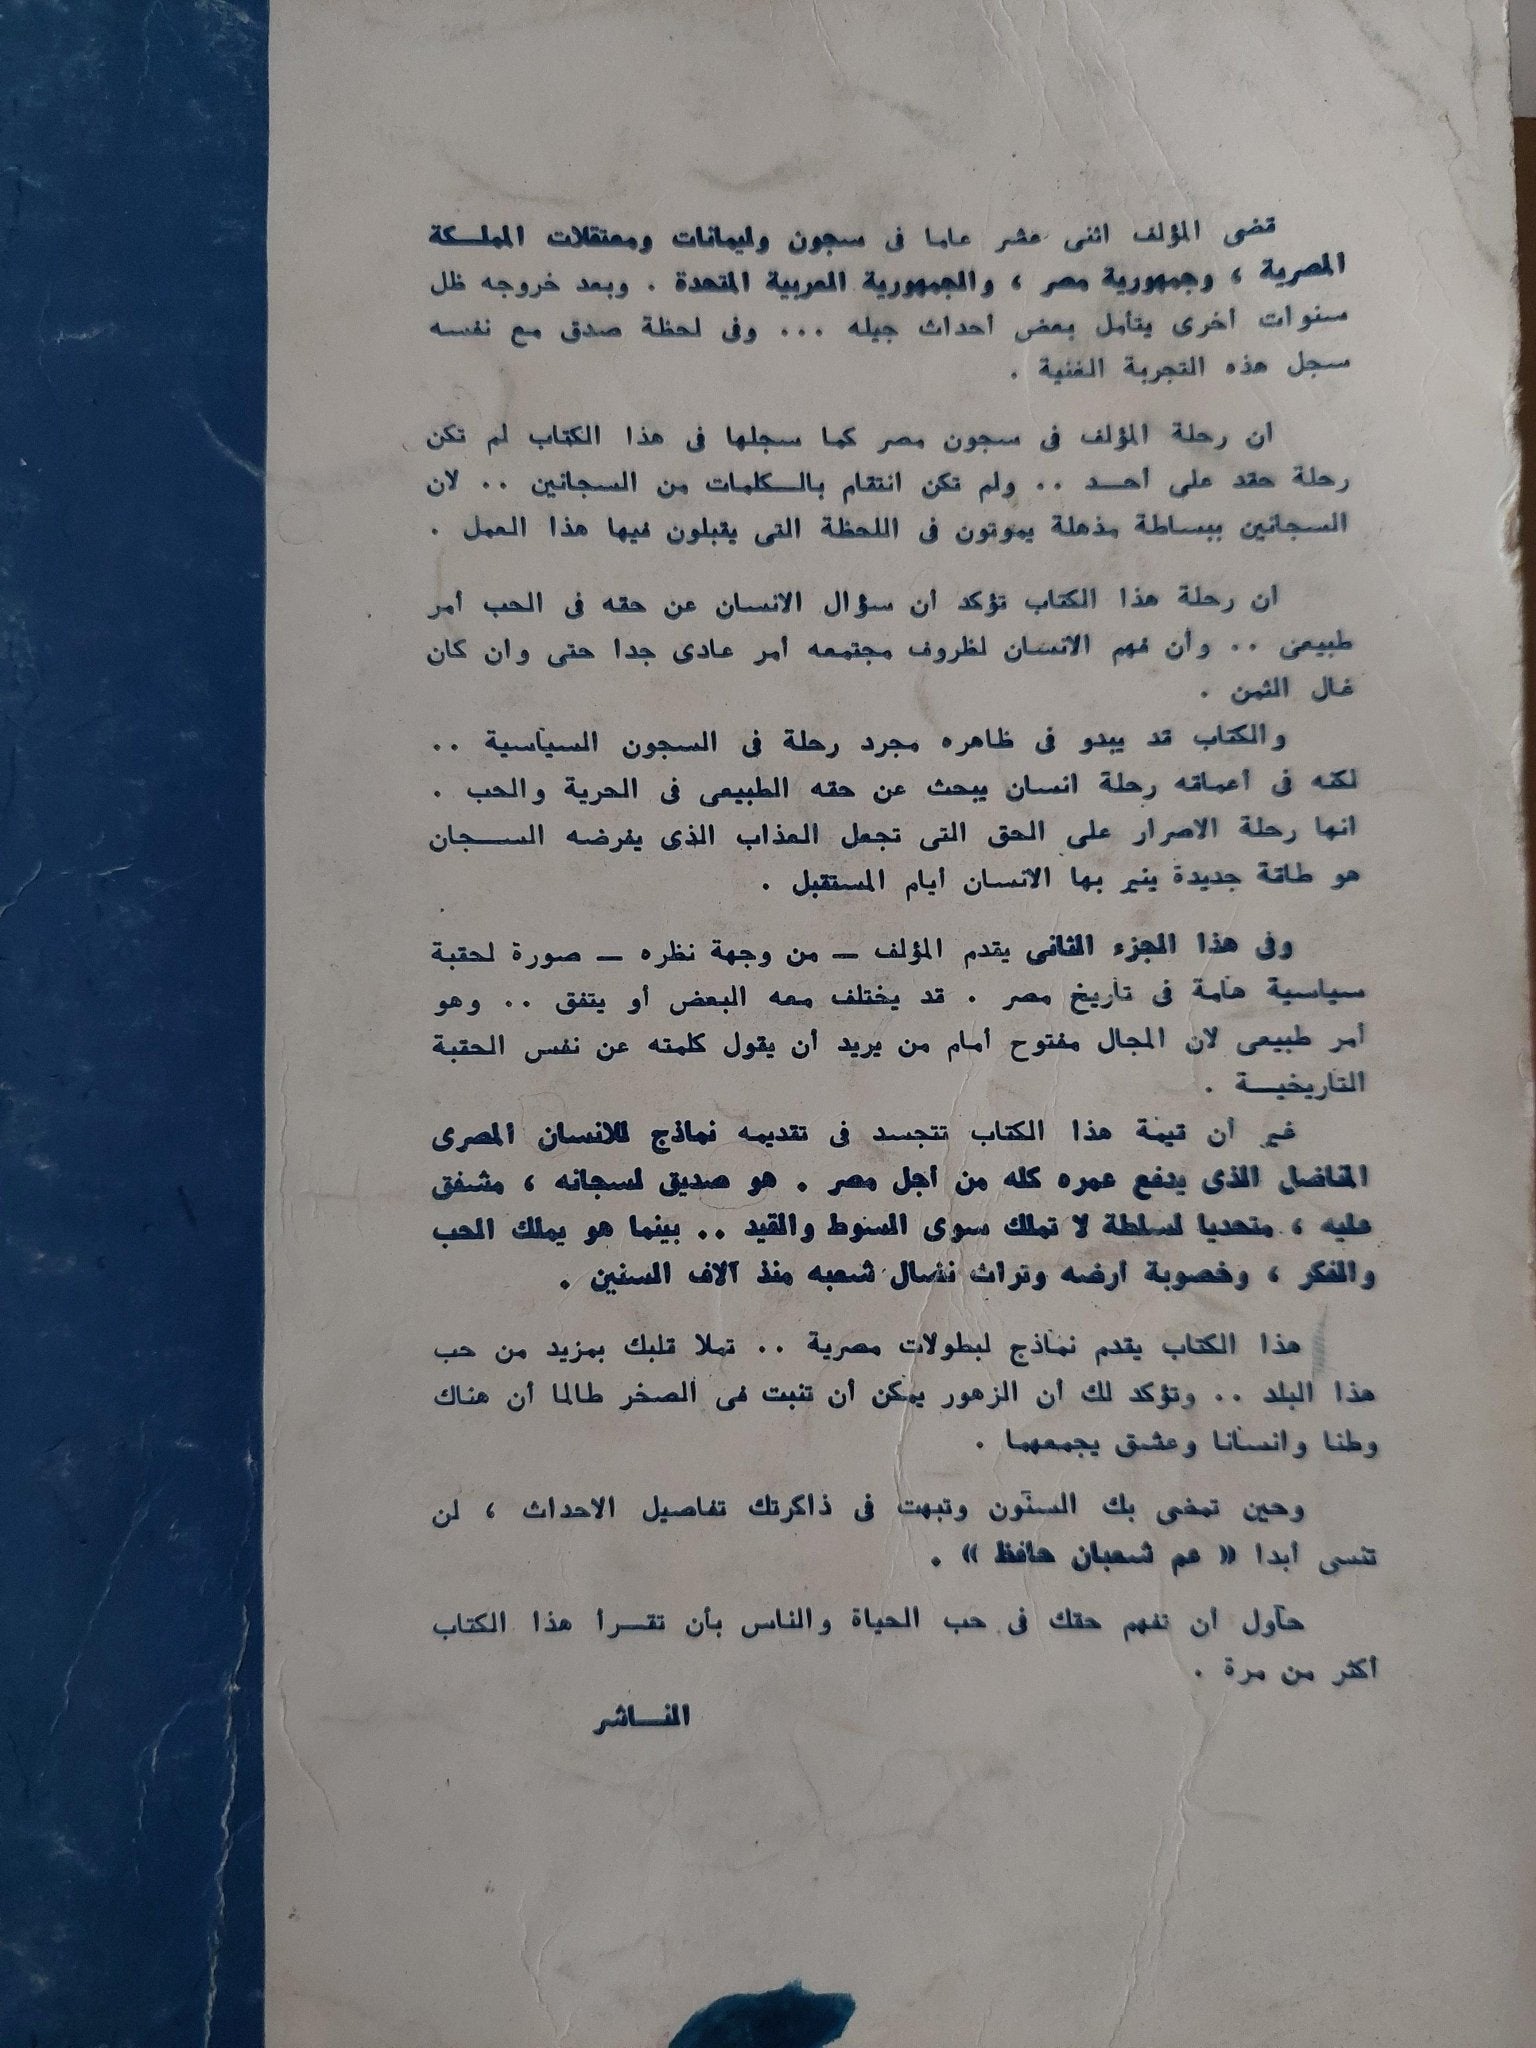 قضى المؤلف اثنى عشر عاما فى سجون وليمانات ومعتقلات المملـكة
المصرية ، وجمهورية مصر ، والجمهورية العربية المتحدة . وبعد خروجه ظل
سنوات أخرى يتأمل بعض أحداث جيله ... وفى لحظة صدق مع نفسه
سجل هذه التجربة الغنية .
ان رحلة المؤلف فى سجون مصر كما سجلها فى هذا الكتاب لم تكن
رحلة حقد على أحـد .. ولم تكن انتقام بالـكلمات من السجانين .. لان
السجانين ببساطة مذهلة يموتون فى اللحظة التى يقبلون فيها هذا العمل .
ان رحلة هذا الكتاب تؤكد أن سؤال الانسان عن حقه فى الحب أمر
طبيعى .. وأن فهم الانسان لظروف مجتمعه أمر عادى جدا حتى وان كان
غال الثمن .
والكتاب قد يبدو فى ظاهره مجرد رحلة فى السجون السياسية ..
لكنه فى أعماقه رحلة انسان يبحث عن حقه الطبيعى فى الحرية والحب .
انها رحلة الاصرار على الحق التى تجعل العذاب الذى يفرضه الســجان
هو طاقة جديدة ينير بها الانسان أيام المستقبل .
وفى هذا الجزء الثانى يقدم المؤلف — من وجهة نظره — صورة لحقبة
سياسية هامة فى تاريخ مصر . قد يختلف معه البعض أو يتفق .. وهو
أمر طبيعى لان المجال مفتوح أمام من يريد أن يقول كلمته عن نفس الحقبة
التاريخيـة .
غير أن قيمة هذا الكتاب تتجسد فى تقديمه نماذج للانسان المصرى
المناضل الذى يدفع عمره كله من أجل مصر . هو صديق لسجانه ، مشفق
عليه ، متحديا لسلطة لا تملك سوى السوط والقيد .. بينما هو يملك الحب
والفكر ، وخصوبة أرضه وتراث نضال شعبه منذ آلاف السنين .
هذا الكتاب يقدم نماذج لبطولات مصرية .. تملا قلبك بمزيد من حب
هذا البلد .. وتؤكد لك أن الزهور يمكن أن تنبت فى الصخر طالما أن هناك
وطنا وانسانا وعشق يجمعهما .
وحين تمضى بك السنون وتبهت فى ذاكرتك تفاصيل الاحداث ، لن
تنسى أبدا « عم شعبان حافظ » .
حاول أن تفهم حقك فى حب الحياة والناس بأن تقـرأ هذا الكتاب
أكثر من مرة .
النـاشر